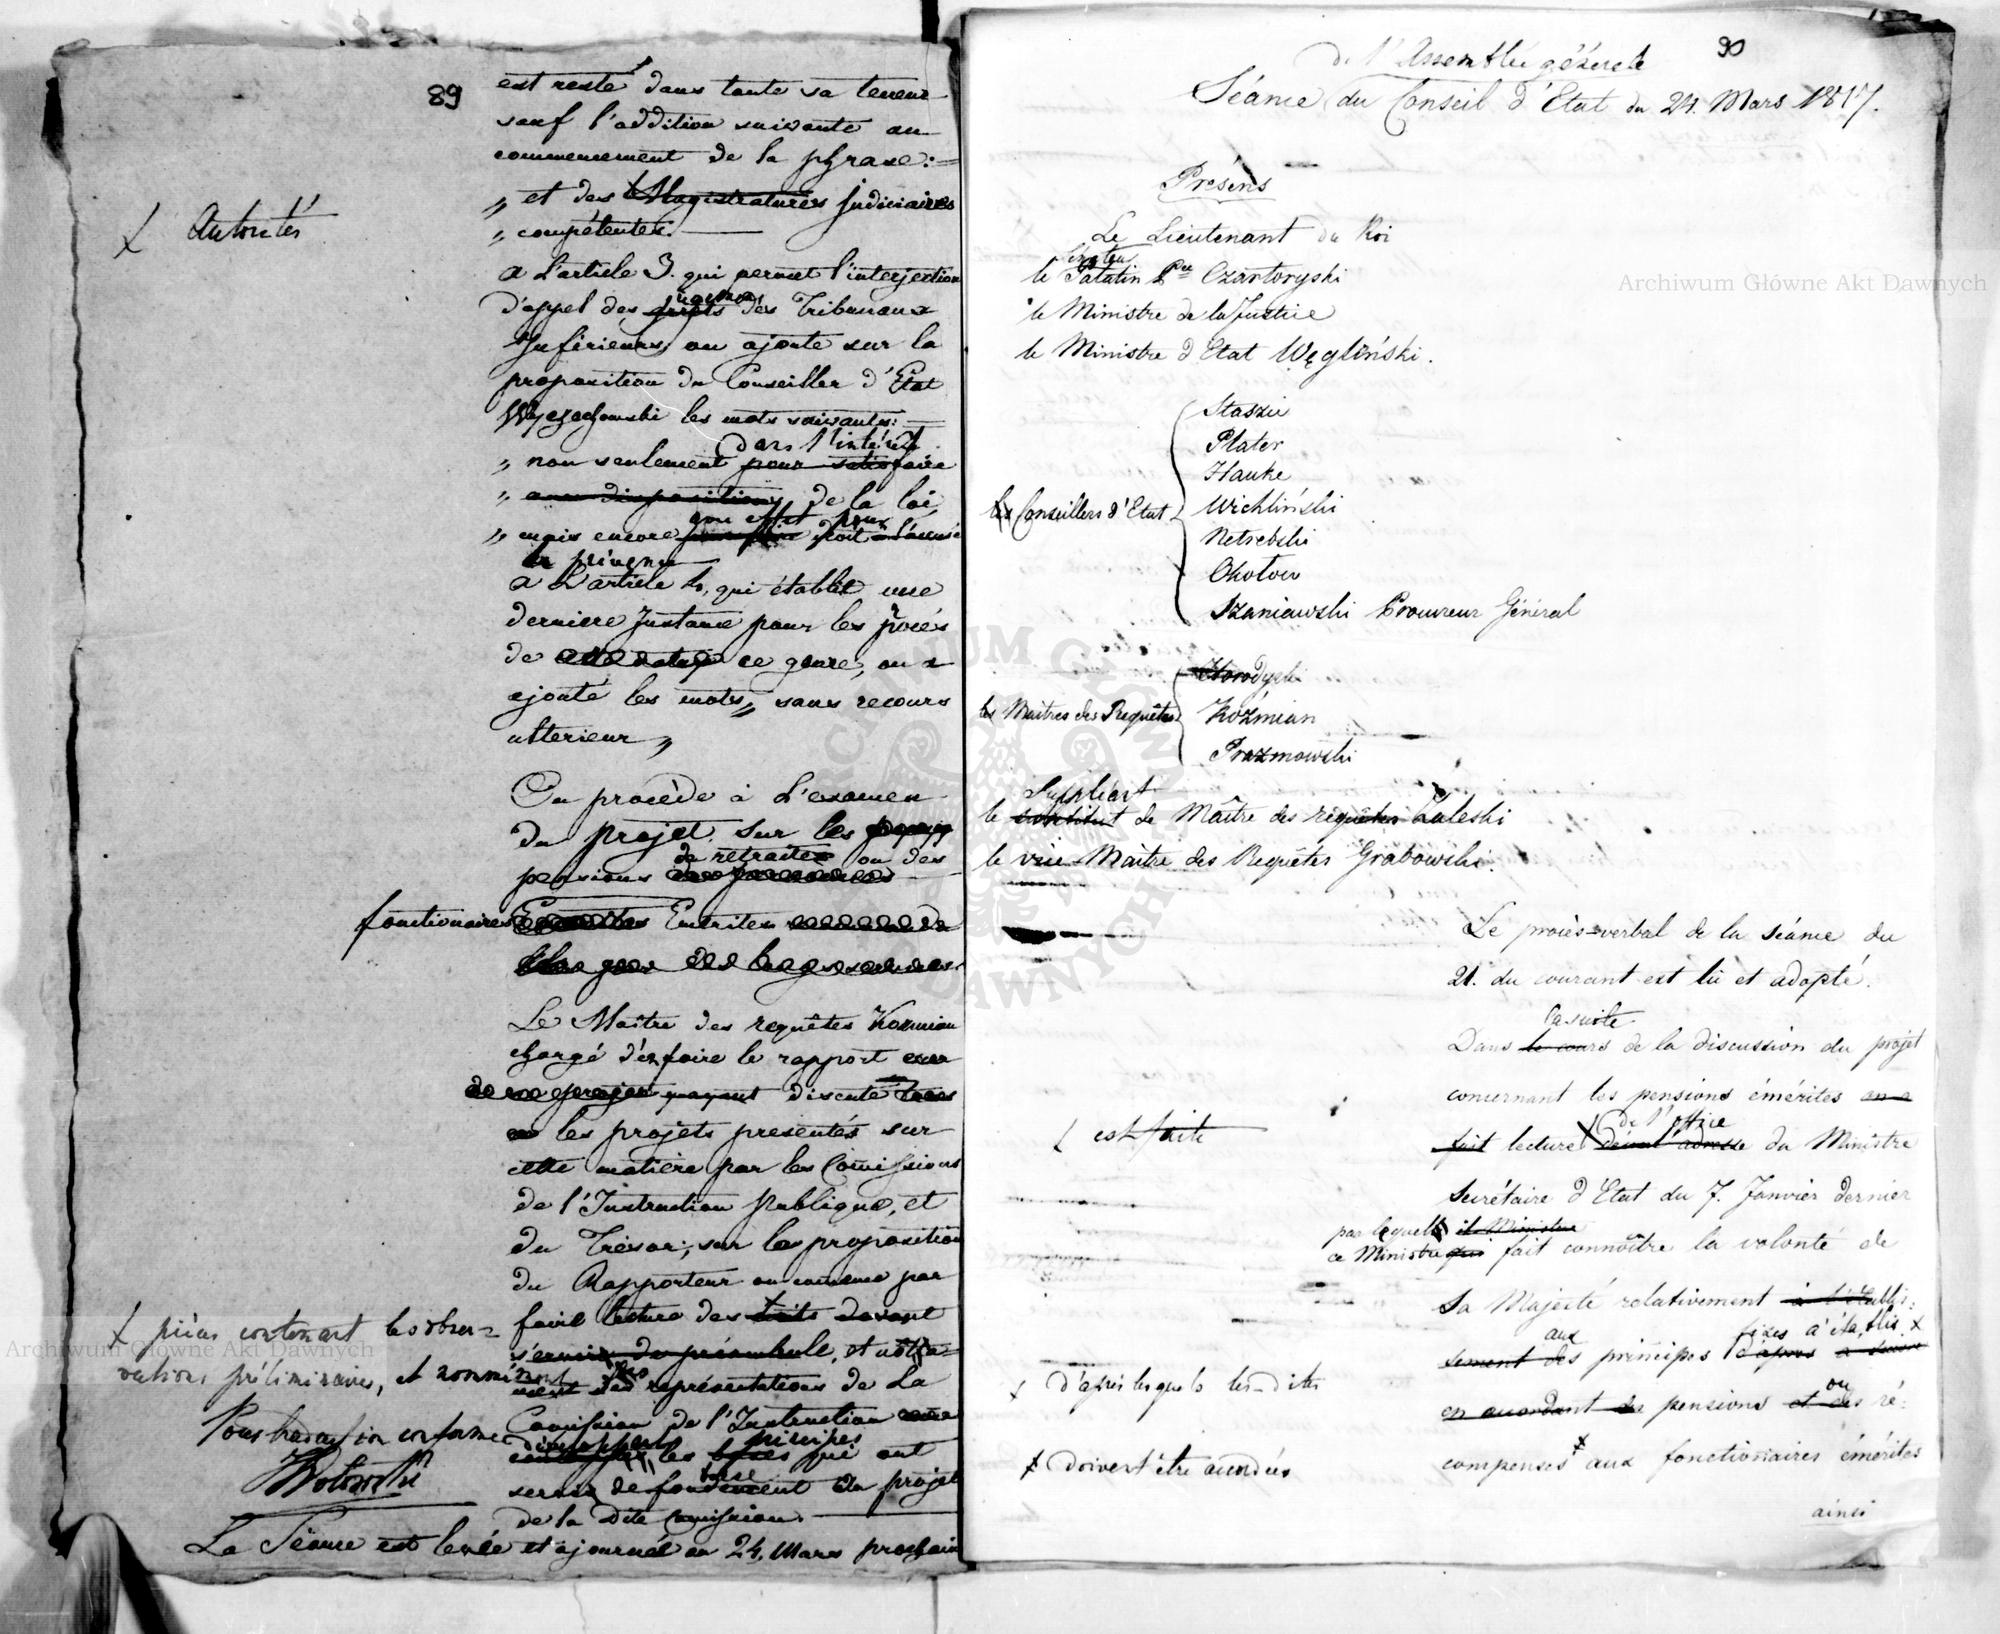 89
est resté dans toute sa teneur
sauf l'addition suivante au
commencement de la phrase:
„ et des Magistratures judiciaires
X Autorités
„ compétentes.
a l'article 3. qui permet l'interjection
jugemens
d'appel des des Tribunaux
Inférieurs, on ajoute sur la
proposition du Conseiller d'Etat
Wyczechowski les mots suivants:
dans l'intérêt
„ non seulement pour satisfaire
„ aux dispositions de la loi,
„ mais encore soit
a L'article 4, qui établit une
derniere Instance pour les procés
de ce genre, on a
ajouté les mots „ sans recours
ulterieur „
On procède à L'examen
du projet sur les
de retraites ou des
pensions
fonctionaires Emerites
Le Maître des requêtes Kozmian
chargé d'en faire le rapport
ayant discuté
les projets presentés sur
cette matière par les Comissions
de l'Instruction publique, et
du Trésor; sur la proposition
du Rapporteur on comence par
faire lecture des traits devant
X pièces contenant les obser=
servir de préambule, et notta=
vations préliminaires, et nommément
ment des représentations de La
Comission de l'Instruction
Pour traduction conforme
principes
les qui ont
base
servir de fondement au projet
de la dite Comission.
La Séance est levée et ajournée au 24. Mars prochain
90
de l'Assemblée générale
Séance du Conseil d'Etat du 24. Mars 1817.
Présens
Le Lieutenant du Roi
Sénateur
le Palatin Pce Czartoryski
le Ministre de la Justice
le Ministre d'Etat Węgliński.
les Conseillers d'Etat
Staszic
Plater
Hauke
Wichliński
Netrebski
Okołow
Szaniawski Procureur Général
les Maîtres des Requêtes
Horodyski
Koźmian
Prazmowski
Supléant
le substitut de Maître des requêtes Zaleski
le vice-Maître des Requêtes Grabowski.
Le procès-verbal de la séance du
21. du courant est lû et adopté.
la suite
Dans le cours de la discussion du projet
concernant les pensions émérites on a
de l'office
fait lecture de l'adresse du Ministre
X est faite
Secrétaire d'Etat du 7. Janvier dernier
par lequel le Ministre
ce Ministre qui fait connoître la volonté de
Sa Majesté relativement à l'établi-
aux fixes à établir X
sement des principes d'après
X d'après lesquels les-dites
ou
en accordant des pensions et des ré-
compenses X aux fonctionnaires émérites
X doivent être accordées
ainsi
Archiwum Główne Akt Dawnych
Archiwum Główne Akt Dawnych
ARCHIWUM GŁÓWNE AKT DAWNYCH